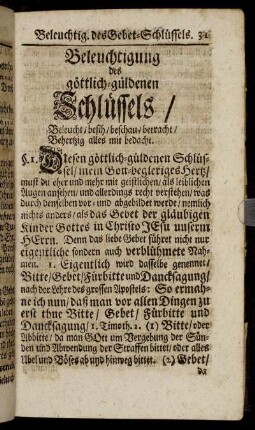 Beleuchtig. des Gebet-Schlüssels. 31
Beleuchtigung
des
göttlich-güldenen
Schlüssels /
Beleucht / besih / beschau / betracht /
Behertzig alles mit bedacht.
§. 1. Diesen göttlich-güldenen Schlüs-
sel / mein Gott-begieriges Hertz /
must du eher und mehr mit geistlichen / als leiblichen
Augen ansehen / und allerdings recht verstehen / was
durch denselben vor- und abgebildet werde / nemlich
nichts anders / als das Gebet der gläubigen
Kinder Gottes in Christo JEsu unserm
HErrn. Denn das liebe Gebet führet nicht nur
eigentliche sondern auch verblühmete Nah-
men. 1. Eigentlich wird dasselbe genennet /
Bitte / Gebet / Fürbitte und Dancksagung /
nach der Lehre des grossen Apostels: So ermah-
ne ich nun / daß man vor allen Dingen zu
erst thue Bitte / Gebet / Fürbitte und
Dancksagung / 1. Timoth. 2. (1) Bitte / oder
Abbitte / da man GOtt um Vergebung der Sün-
den und Abwendung der Straffen bittet / oder alles
Ubel und Böses ab und hinweg bittet. (2) Gebet /
da